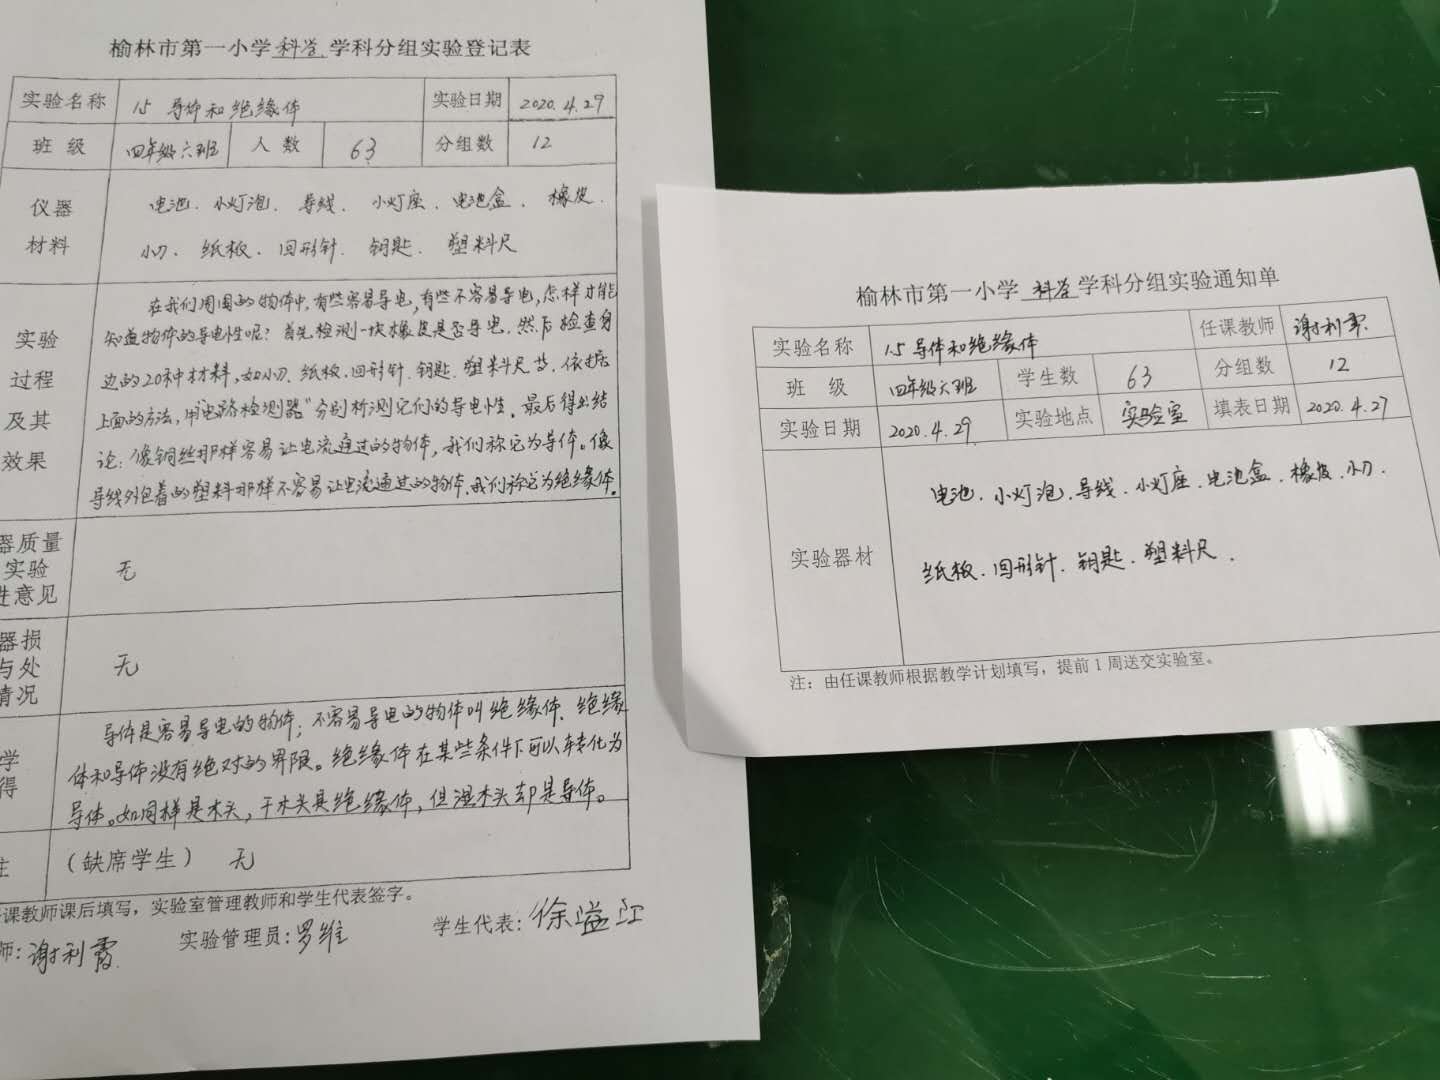 榆林市第一小学 科学 学科分组实验登记表
实验名称 1.5 导体和绝缘体 实验日期 2020.4.29
班 级 四年级六班 人 数 63 分组数 12
仪器 电池、小灯泡、导线、小灯座、电池盒、橡皮、
材料 小刀、纸板、回形针、钥匙、塑料尺
在我们周围的物体中,有些容易导电,有些不容易导电,怎样才能
实验 知道物体的导电性呢?首先检测一块橡皮是否导电,然后检查身
过程 边的20种材料,如小刀、纸板、回形针、钥匙、塑料尺等,依据
及其 上面的方法,用"电路检测器"分别检测它们的导电性。最后得出结
效果 论:像铜丝那样容易让电流通过的物体,我们称它为导体。像
导线外包着的塑料那样不容易让电流通过的物体,我们称它为绝缘体。
器质量
实验 无
性意见
器损
与处 无
情况
导体是容易导电的物体;不容易导电的物体叫绝缘体、绝缘
学 体和导体没有绝对的界限。绝缘体在某些条件下可以转化为
得 导体。如同样是木头,干木头是绝缘体,但湿木头却是导体。
注 (缺席学生) 无
课教师课后填写,实验室管理教师和学生代表签字。
师:谢利霞 实验管理员:罗维 学生代表:徐溢江
榆林市第一小学 科学 学科分组实验通知单
实验名称 1.5 导体和绝缘体 任课教师 谢利霞
班 级 四年级六班 学生数 63 分组数 12
实验日期 2020.4.29 实验地点 实验室 填表日期 2020.4.27
电池、小灯泡、导线、小灯座、电池盒、橡皮、小刀、
实验器材 纸板、回形针、钥匙、塑料尺、
注:由任课教师根据教学计划填写,提前1周送交实验室。